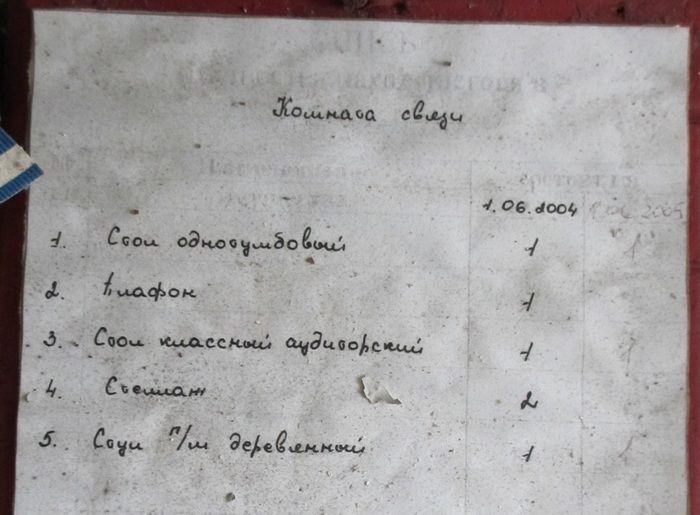 Комната связи
1.06.2004 1.06.2005
1. Стол однотумбовый 1 "1"
2. Плафон 1
3. Стол классный аудиторский 1 1
4. Стеллаж 2
5. Стул п/м деревянный 1 1